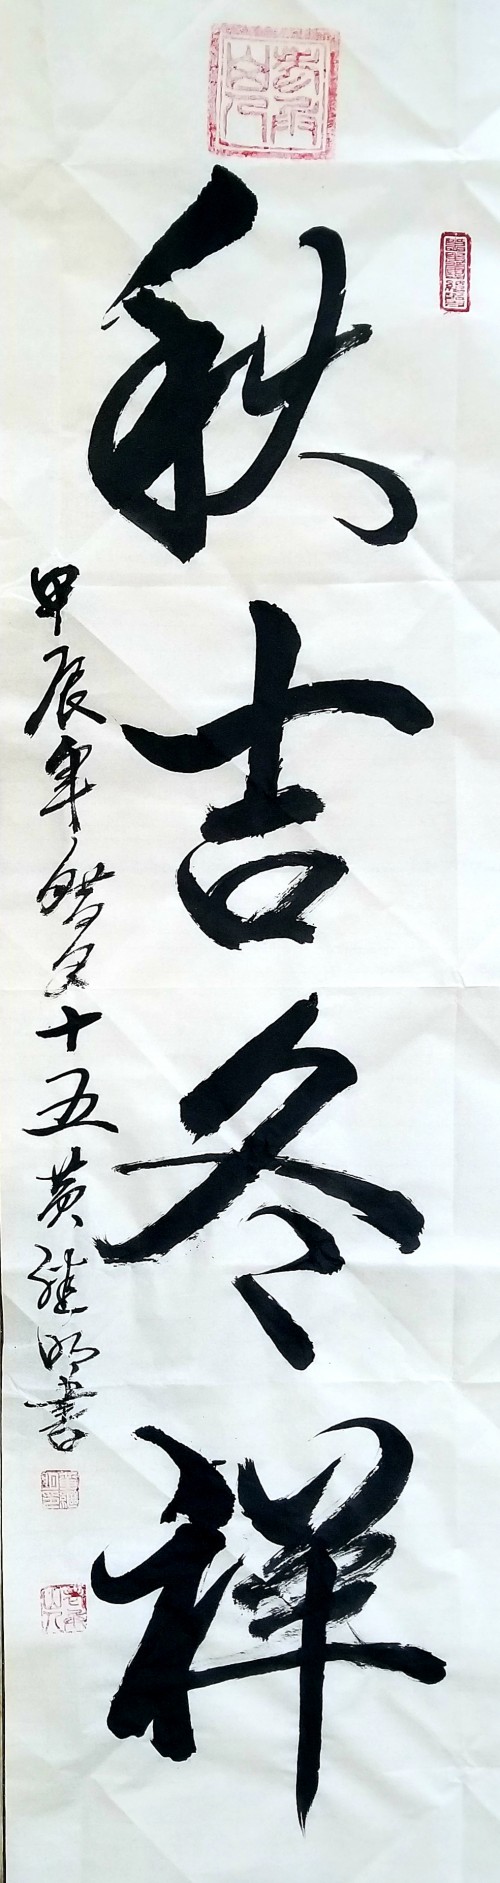 秋吉冬祥
甲辰年腊月十五黄建明書